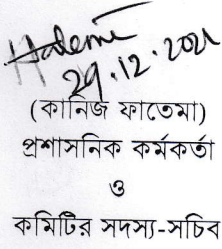 29.12.2021
(কানিজ ফাতেমা)
প্রশাসনিক কর্মকর্তা
ও
কমিটির সদস্য-সচিব